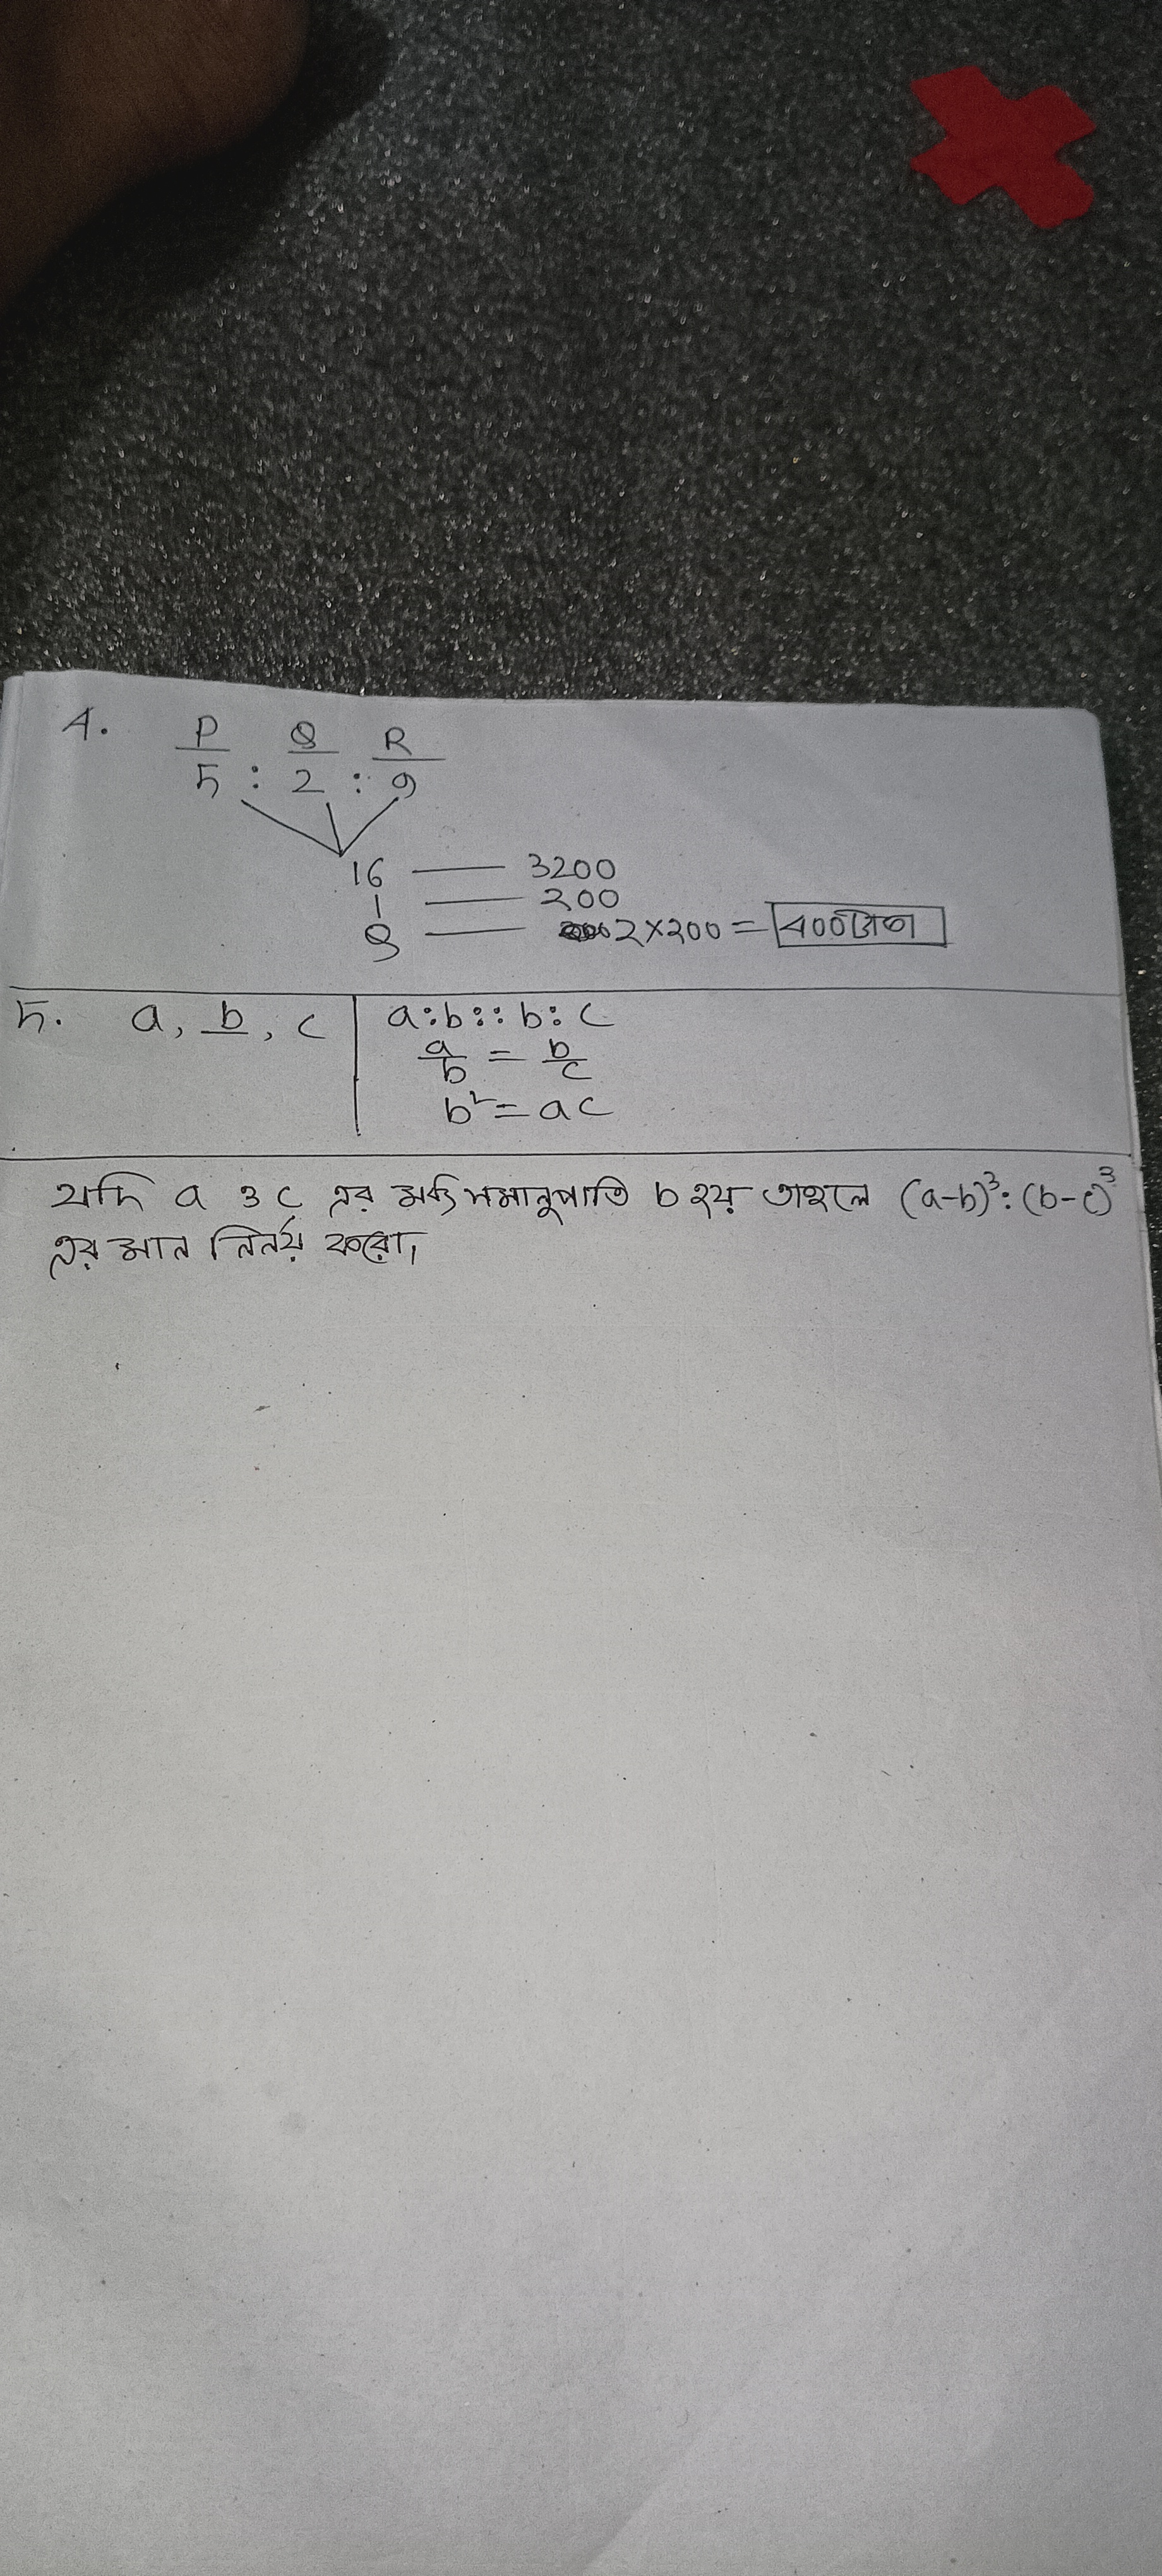 4. P Q R
5 : 2 : 9
16 — 3200
1 — 200
Q — 2×200 = 400টাকা
5. a, b, c a:b::b:c
a/b = b/c
b² = ac
যদি a ও c এর মধ্য সমানুপাতি b হয় তাহলে (a-b)³:(b-c)³
এর মান নির্নয় করো।